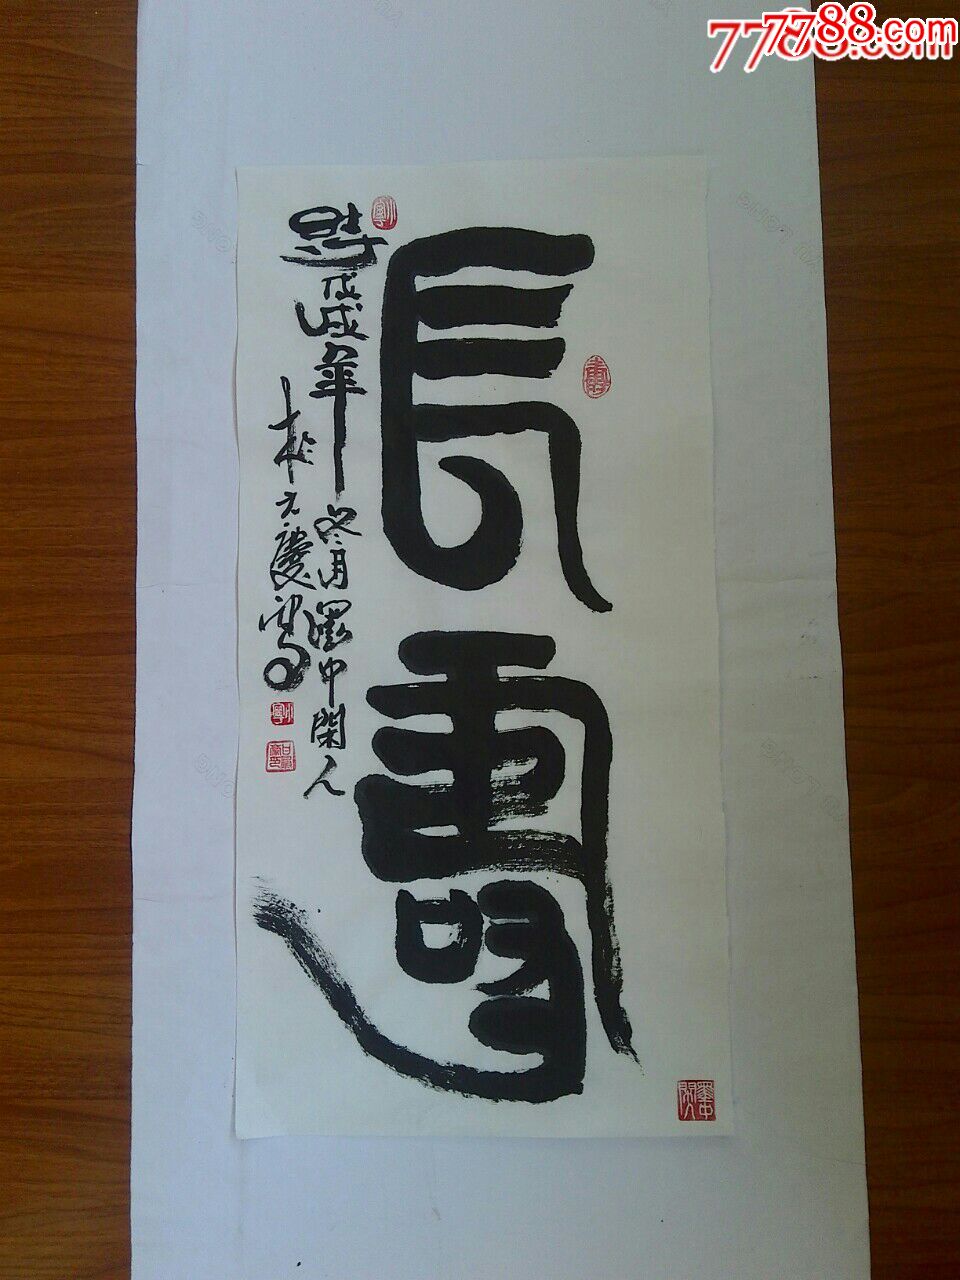 77788.com
長壽
時戊戌年冬月墨中閑人
於大慶寫
墨中閑人